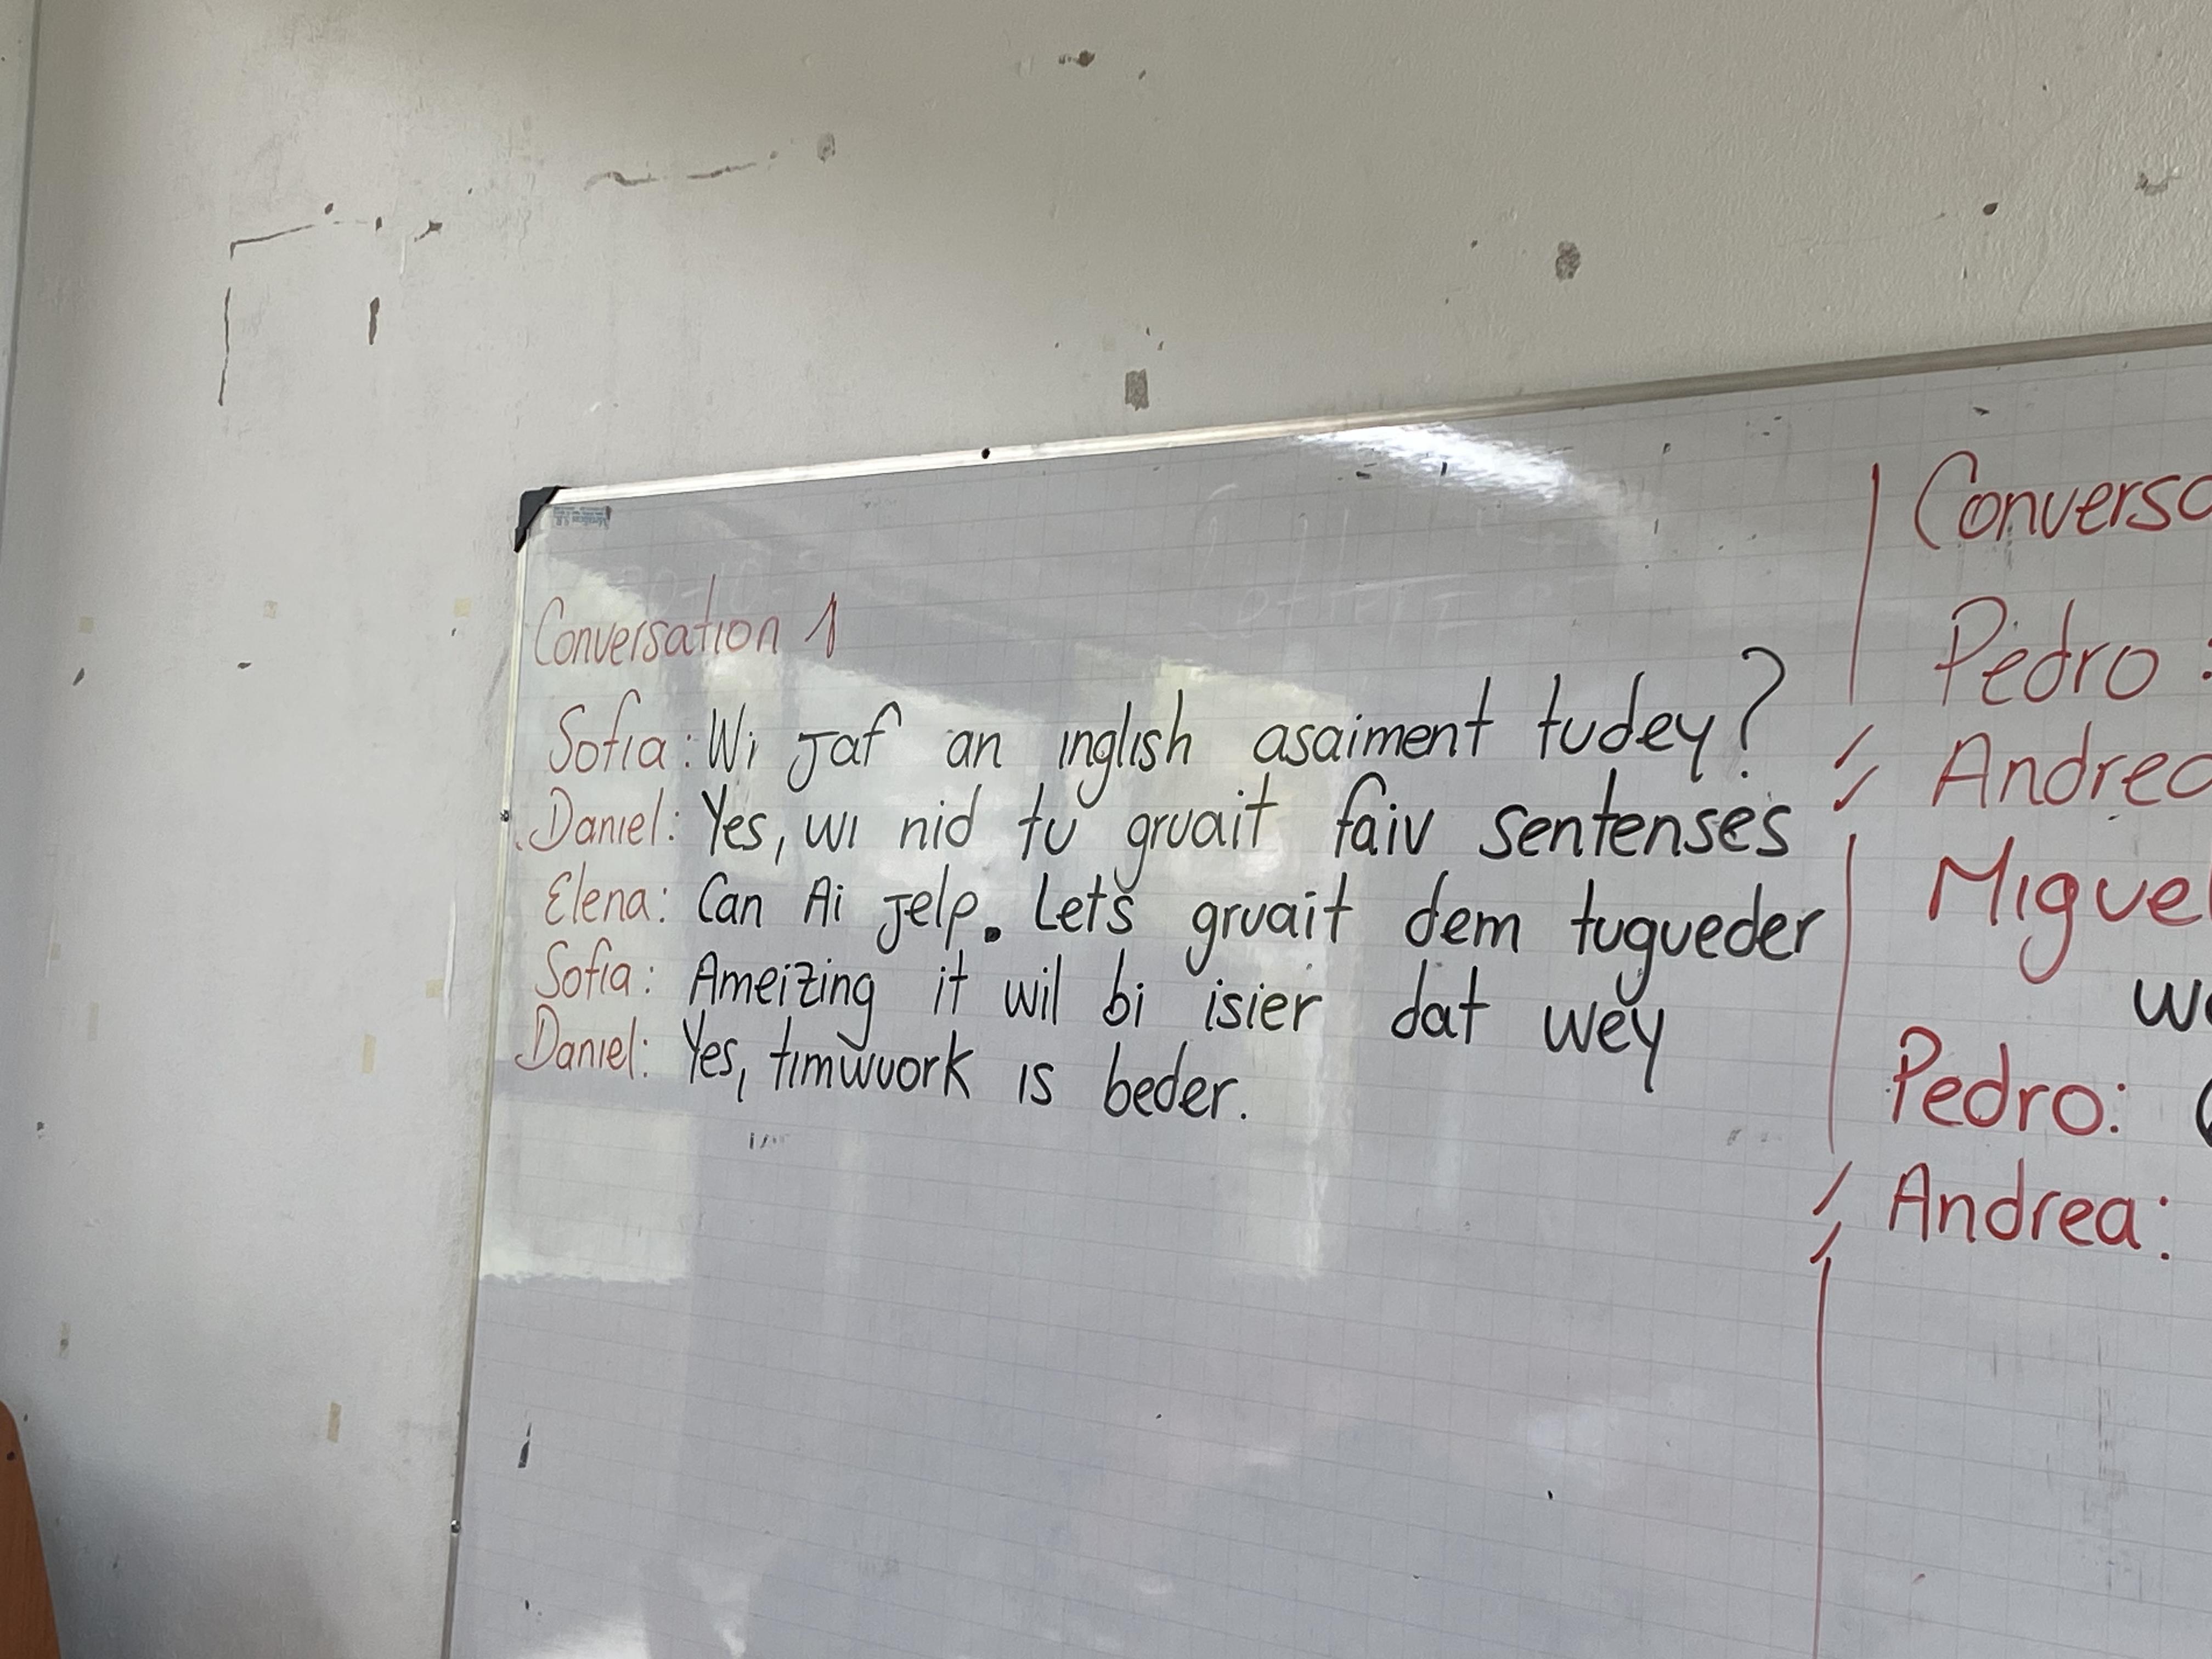 Conversation 1
Sofia: Wi jaf an inglish asaiment tudey?
Daniel: Yes, wi nid tu gruait faiv sentenses
Elena: Can Ai jelp. Let's gruait dem tugueder
Sofia: Ameizing it wil bi isier dat wey
Daniel: Yes, timwuork is beder.
Conversa
Pedro:
Andrea
Miguel
we
Pedro: (
Andrea: